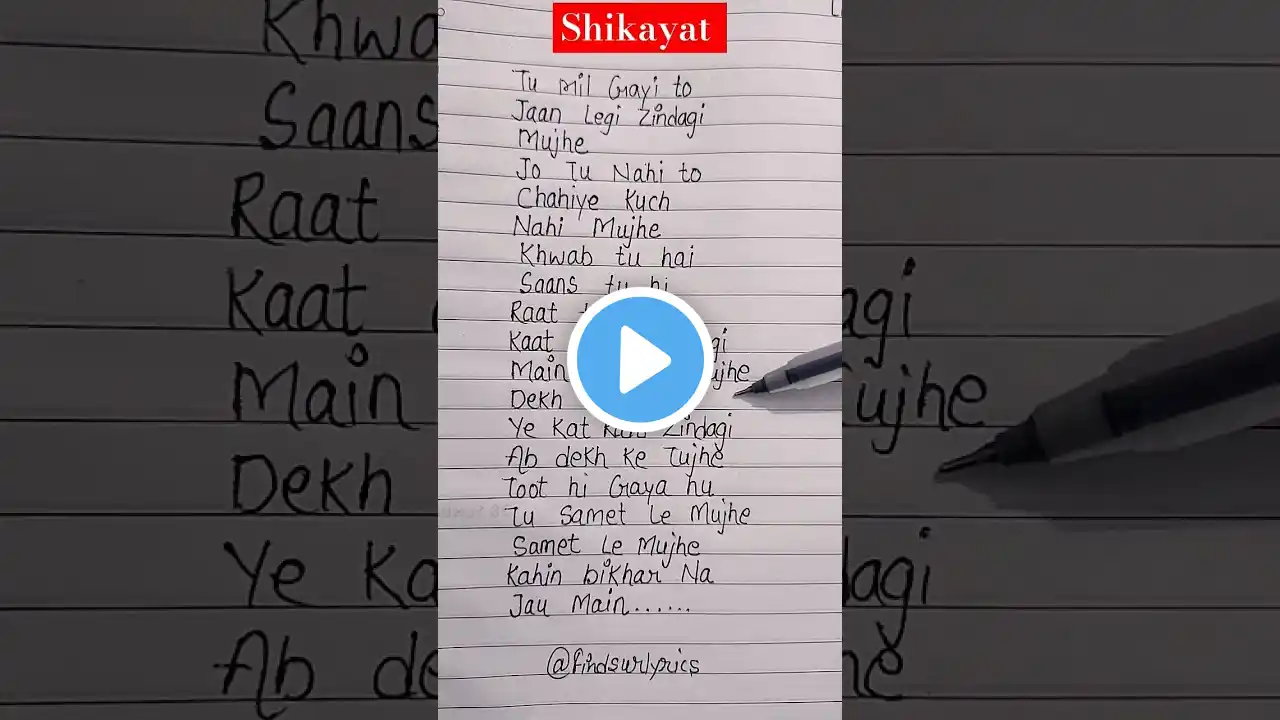 Shikayat
Tu Mil Gayi to
Jaan Legi Zindagi
Mujhe
Jo Tu Nahi to
Chahiye Kuch
Nahi Mujhe
Khwab tu hai
Saans tu hi
Raat
Kaat
Main
Dekh
Ye Kat Zindagi
Ab dekh ke Tujhe
Toot hi Gaya hu
Tu Samet Le Mujhe
Samet Le Mujhe
Kahin bikhar Na
Jau Main......
@findsurlyrics